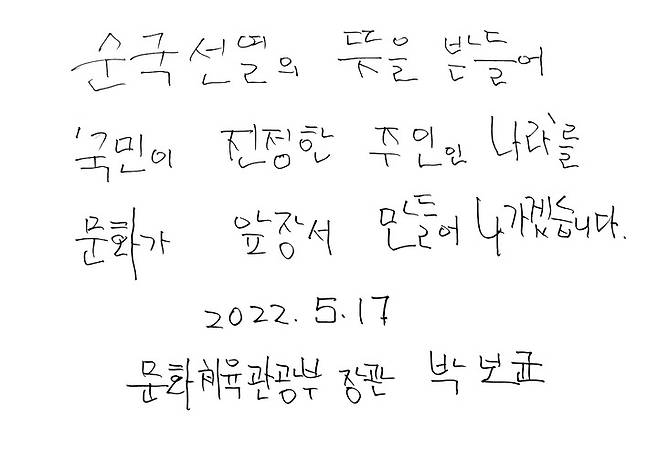 순국선열의 뜻을 받들어
'국민이 진정한 주인인 나라'를
문화가 앞장서 만들어 나가겠습니다.
2022. 5. 17
문화체육관광부 장관 박보균